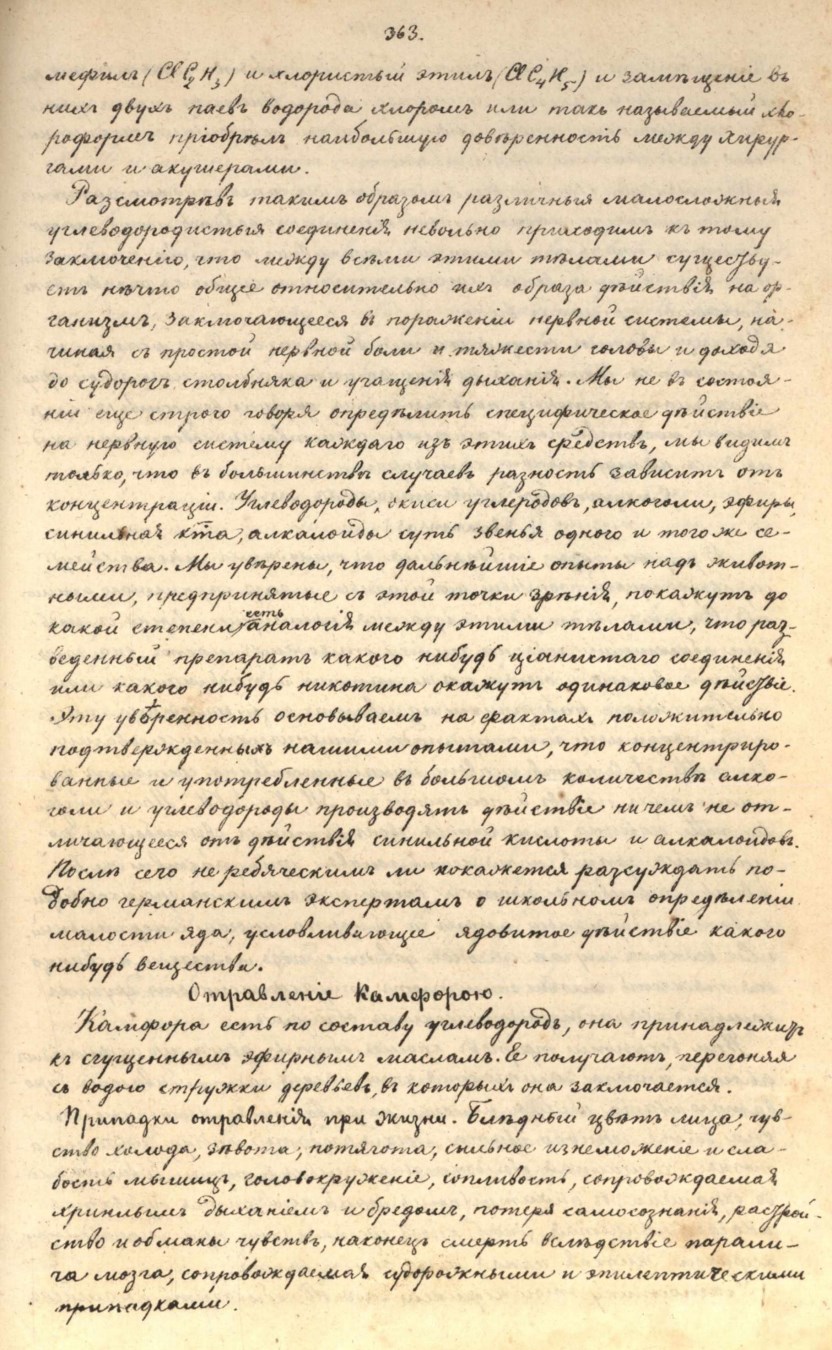 363.
мефилъ (Cl C2 H3) и хлористый этилъ (Cl C4 H5) и замѣщеніе въ
нихъ двухъ паевъ водорода хлоромъ или такъ называемый хло-
роформъ пріобрѣлъ наибольшую довѣренность между хирур-
гами и акушерами.
Разсмотрѣвъ такимъ образомъ различныя малосложныя
углеводородистыя соединенія невольно приходимъ къ тому
заключенію, что между всѣми этими тѣлами существу-
етъ нѣчто общее относительно ихъ образа дѣйствія на ор-
ганизмъ, заключающееся въ пораженіи нервной системы, на-
чиная съ простой нервной боли и тяжести головы и доходя
до судорогъ столбняка и учащенія дыханія. Мы не въ состоя-
ніи еще строго говоря опредѣлить специфическое дѣйствіе
на нервную систему каждаго изъ этихъ средствъ, мы видимъ
только, что въ большинствѣ случаевъ разность зависитъ отъ
концентраціи. Углеводороды, окиси углеродовъ, алкоголи, эфиры,
синильная кта, алкалоиды суть звенья одного и того же се-
мейства. Мы увѣрены, что дальнѣйшіе опыты надъ живот-
ными, предпринятые съ этой точки зрѣнія, покажутъ до
какой степени есть аналогія между этими тѣлами, что раз-
веденный препаратъ какого нибудь ціанистаго соединенія
или какого нибудь никотина окажутъ одинаковое дѣйствіе.
Эту увѣренность основываемъ на фактахъ положительно
подтвержденныхъ нашими опытами, что концентриро-
ванные и употребленные въ большомъ количествѣ алко-
голи и углеводороды производятъ дѣйствіе ничемъ не от-
личающееся отъ дѣйствія синильной кислоты и алкалоидовъ.
Послѣ сего не ребяческимъ ли покажется разсуждать по-
добно германскимъ экспертамъ о школьномъ опредѣленіи
малости яда, условливающее ядовитое дѣйствіе какого
нибудь вещества.
Отравленіе Камфорою.
Камфора есть по составу углеводородъ, она принадлежитъ
къ сгущеннымъ эфирнымъ масламъ. Ее получаютъ, перегоняя
съ водою стружки деревьевъ, въ которыхъ она заключается.
Припадки отравленія при жизни. Блѣдный цвѣтъ лица, чув-
ство холода, зѣвота, потягота, сильное изнеможеніе и сла-
бость мышицъ, головокруженіе, сопливость, сопровождаемая
хриплымъ дыханіемъ и бредомъ, потеря самосознанія, растрой-
ство и обманы чувствъ, наконецъ смерть вслѣдствіе парали-
ча мозга, сопровождаемая судорожными и эпилептическими
припадками.